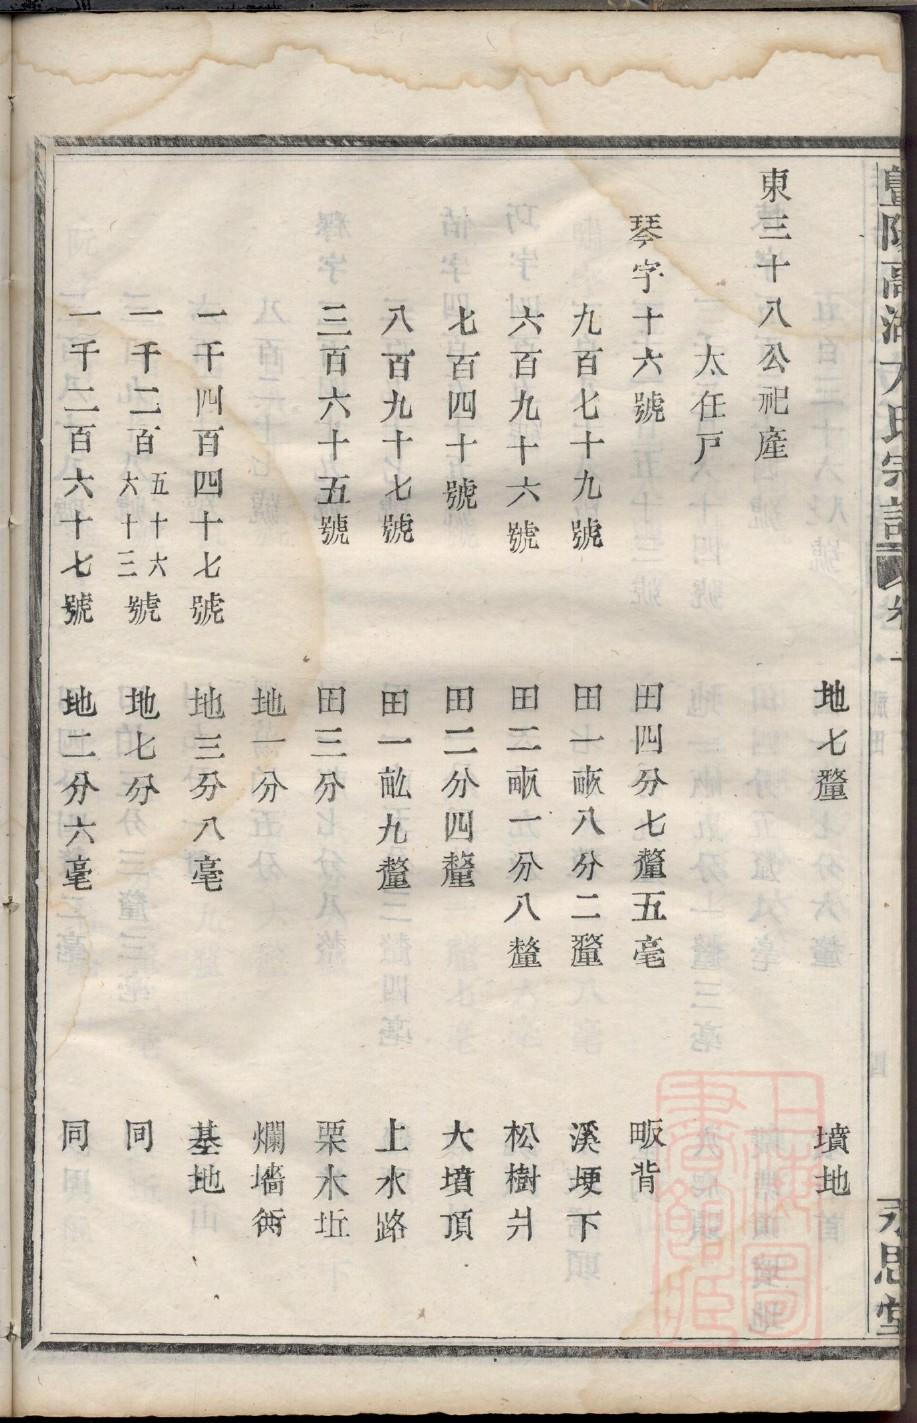 暨陽高湖方氏宗譜 卷
永思堂
地七釐 墳地
東三十八公祀產
太任戸
琴字十六號 田四分七釐五毫 畈背
九百七十九號 田一畝八分二釐 溪埂下
六百九十六號 田二畝一分八釐 松樹爿
七百四十號 田二分四釐 大墳頂
八百九十七號 田一畝九釐 上水路
三百六十五號 田三分 栗木坵
地一分 爛墻衖
一千四百四十七號 地三分八毫 基地
一千二百五十六六十三號 地七分 同
一千二百六十七號 地二分六毫 同